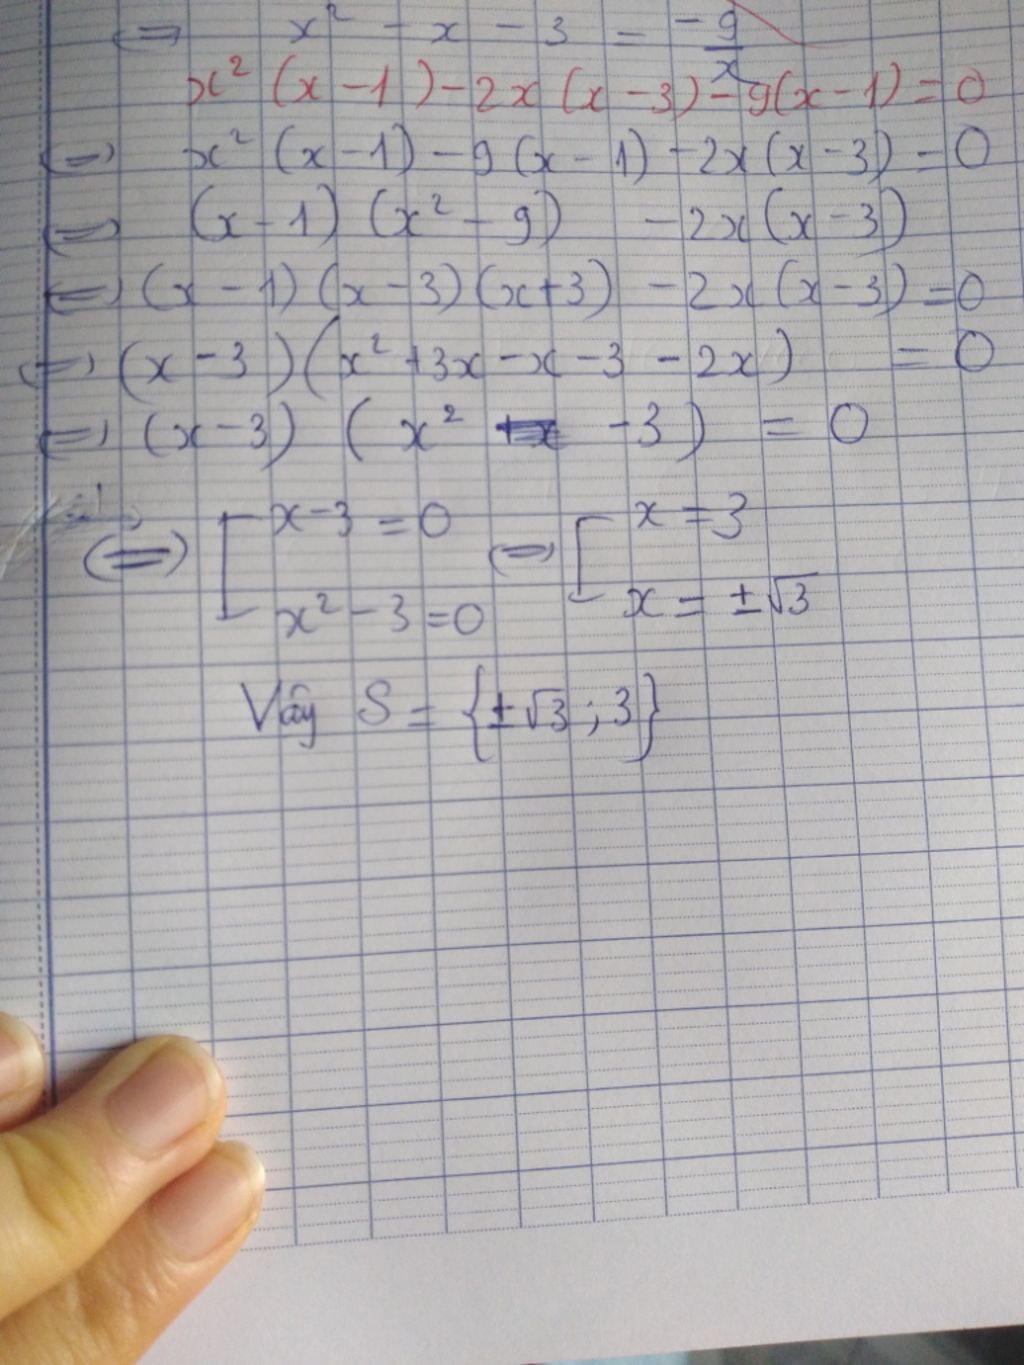 (=) x² - x - 3 = -9/x
x² (x - 1) - 2x (x - 3) - 9(x - 1) = 0
(=) x² (x - 1) - 9 (x - 1) - 2x (x - 3) = 0
(=) (x - 1) (x² - 9) - 2x (x - 3)
(=) (x - 1) (x - 3) (x + 3) - 2x (x - 3) = 0
(=) (x - 3) (x² + 3x - x - 3 - 2x) = 0
(=) (x - 3) (x² - 3) = 0
(=) [ x - 3 = 0 (=) [ x = 3
x² - 3 = 0 x = ±√3
Vậy S = {±√3 ; 3}